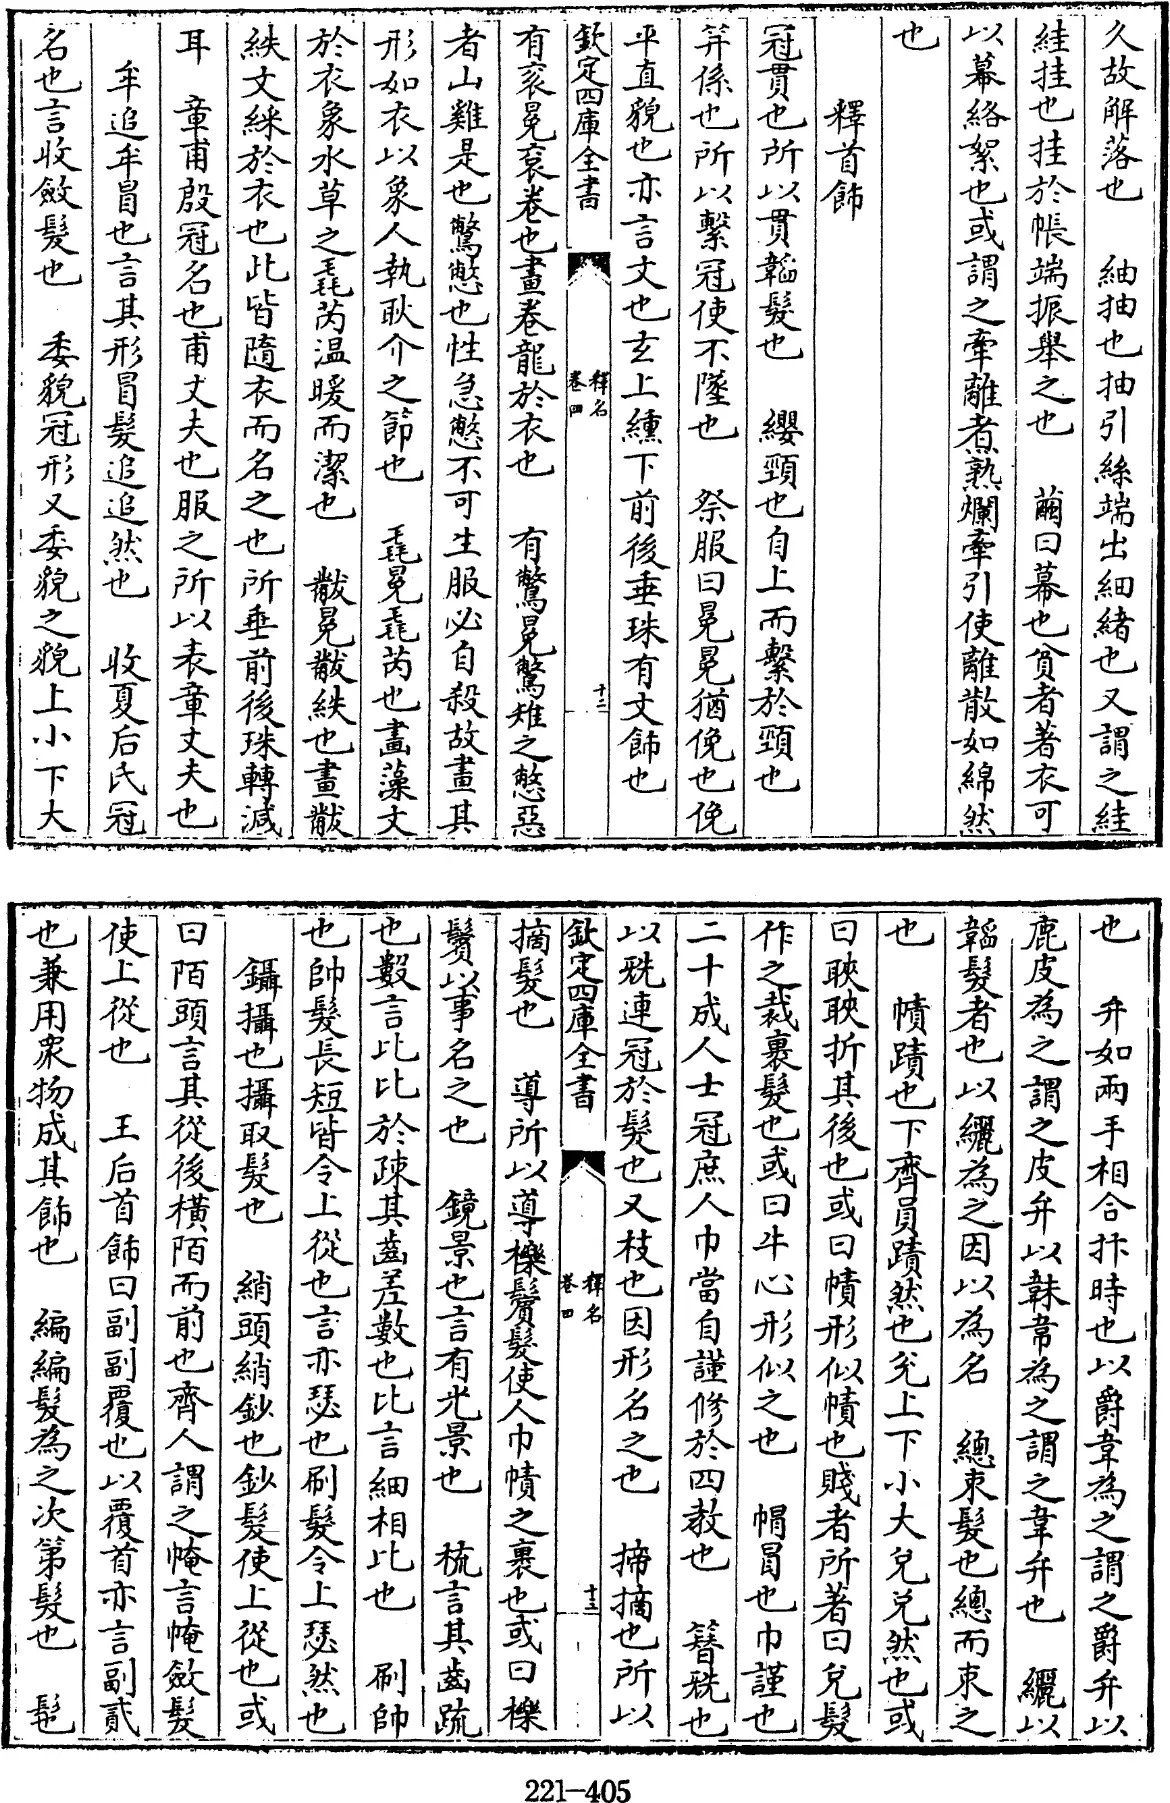 久故解落也　紬抽也抽引絲端出細緒也又謂之絓
絓挂也挂於帳端振舉之也　繭曰幕也貧者著衣可
以幕絡絮也或謂之牽離煮熟爛牽引使離散如綿然
也
釋首飾
冠貫也所以貫韜髮也　纓頸也自上而繫於頸也
笄係也所以繫冠使不墜也　祭服曰冕冕猶俛也俛
平直貌也亦言文也玄上纁下前後垂珠有文飾也
欽定四庫全書
釋名
卷四
十二
有衮冕衮卷也畫卷龍於衣也　有鷩冕鷩雉之憋惡
者山雞是也鷩憋也性急憋不可生服必自殺故畫其
形如衣以象人執耿介之節也　毳冕毳芮也畫藻文
於衣象水草之毳芮温暖而潔也　黻冕黻紩也畫黻
紩文綵於衣也此皆隨衣而名之也所垂前後珠轉減
耳　章甫殷冠名也甫丈夫也服之所以表章丈夫也
牟追牟冒也言其形冒髮追追然也　收夏后氏冠
名也言收斂髮也　委貌冠形又委貌之貌上小下大
也　弁如兩手相合抃時也以爵韋為之謂之爵弁以
鹿皮為之謂之皮弁以韎韋為之謂之韋弁也　纚以
韜髮者也以纚為之因以為名　總束髮也總而束之
也　幘蹟也下齊員蹟然也兊上下小大兊兊然也或
曰䀹䀹折其後也或曰幘形似幘也賤者所著曰兊髮
作之裁裹髮也或曰牛心形似之也　帽冒也巾謹也
二十成人士冠庶人巾當自謹修於四教也　簪兟也
以兟連冠於髮也又枝也因形名之也　揥摘也所以
欽定四庫全書
釋名
卷四
十三
摘髮也　導所以導櫟鬢髮使人巾幘之裏也或曰櫟
鬢以事名之也　鏡景也言有光景也　梳言其齒疏
也數言比比於疎其齒差數也比言細相比也　刷帥
也帥髮長短皆令上從也言亦瑟也刷髮令上瑟然也
鑷攝也攝取髮也　綃頭綃鈔也鈔髮使上從也或
曰陌頭言其從後橫陌而前也齊人謂之㡋言㡋斂髮
使上從也　王后首飾曰副副覆也以覆首亦言副貳
也兼用衆物成其飾也　編編髮為之次第髮也　髢
221-405